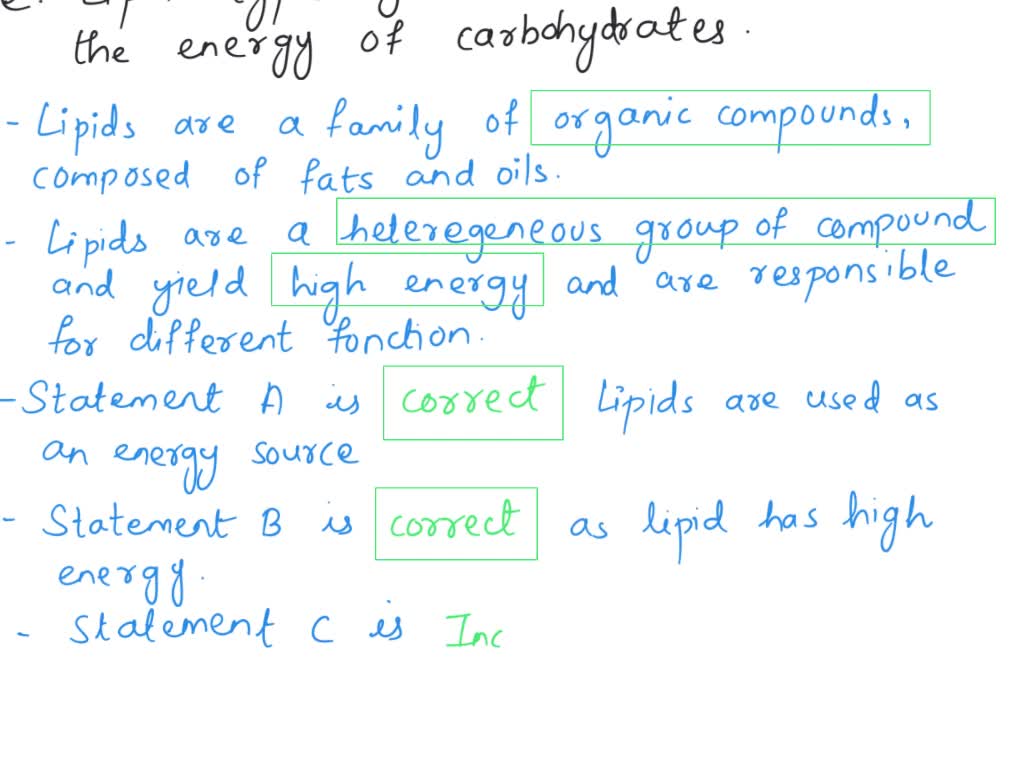 the energy of carbohydrates.
- Lipids are a family of organic compounds,
composed of fats and oils.
- Lipids are a heteregeneous group of compound
and yield high energy and are responsible
for different fonction.
- Statement A is correct Lipids are used as
an energy source
- Statement B is correct as lipid has high
energy.
- Statement C is Inc